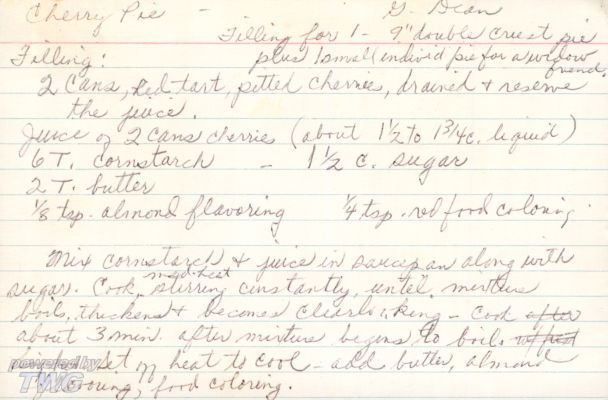 Cherry Pie - G. Dean
Filling for 1 - 9" double crust pie
Filling: plus 1 small individ pie for a widow
friend.
2 Cans, red tart, pitted cherries, drained & reserve
the juice.
Juice of 2 cans cherries (about 1 1/2 to 1 3/4 c. liquid)
6 T. cornstarch - 1 1/2 c. sugar
2 T. butter
1/8 tsp. almond flavoring 1/4 tsp. red food coloring
Mix cornstarch & juice in saucepan along with
med. heat
sugar. Cook, stirring constantly, until mixture
boils, thickens & becomes clear looking - Cook after
about 3 min. after mixture begins to boil.
set off heat to cool - add butter, almond
flavoring, food coloring.
powered by
TWG